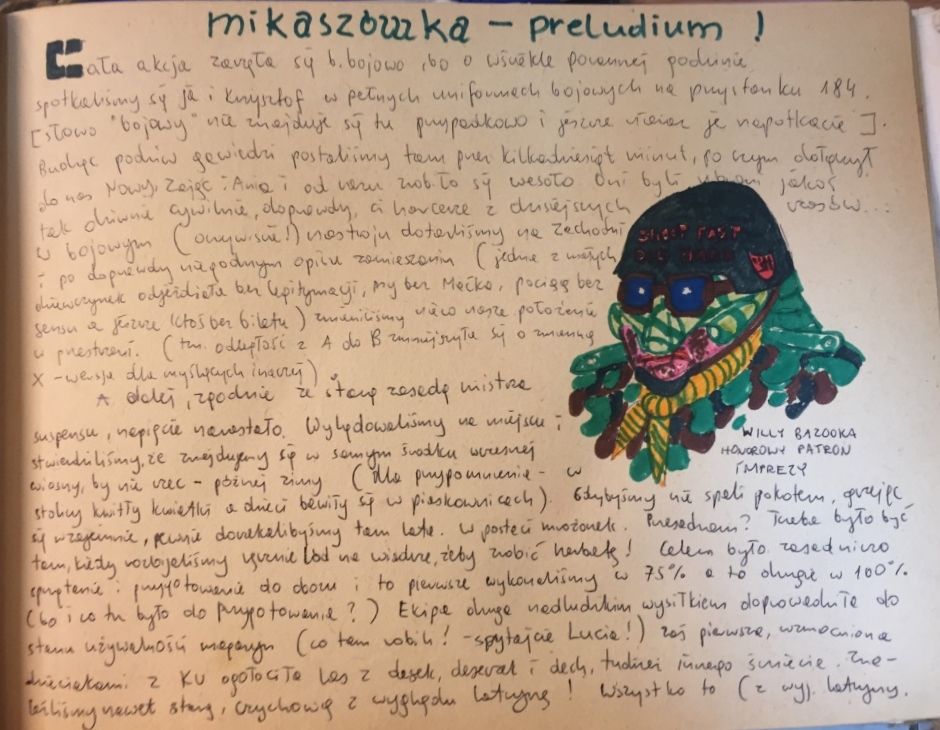 mikaszówka - preludium !
Cała akcja zaczęła się b. bojowo, bo o wściekle porannej godzinie
spotkaliśmy się ja i Krzysztof w pełnych uniformach bojowych na przystanku 184.
[słowo "bojowy" nie znajduje się tu przypadkowo i jeszcze nieraz je napotkacie].
Budząc podziw gawiedzi postaliśmy tam przez kilkadziesiąt minut, po czym dołączył
do nas Nowy, Zając i Ania i od razu zrobiło się wesoło. Oni byli ubrani jakoś
tak dziwnie cywilnie, doprawdy, ci harcerze z dzisiejszych czasów...
W bojowym (oczywiście!) nastroju dotarliśmy na Zachodni
i po doprawdy niegodnym opisu zamieszaniu (jedna z małych
dziewczynek odjeżdżała bez legitymacji, my bez Maćka, pociąg bez
sensu a jeszcze ktoś bez biletu) zmieniliśmy nieco nasze położenie
w przestrzeni. (tzn. odległość z A do B zmniejszyła się o zmienną
X - wersja dla myślących inaczej)
A dalej, zgodnie ze starą zasadą mistrza
suspensu, napięcie narastało. Wylądowaliśmy na miejscu i
stwierdziliśmy, że znajdujemy się w samym środku wczesnej
wiosny, by nie rzec - późnej zimy (dla przypomnienia - w
stolicy kwitły kwiatki a dzieci bawiły się w piaskownicach). Gdybyśmy nie spali pokotem, grzejąc
się wzajemnie, pewnie doczekalibyśmy tam lata. W postaci mrożonek. Przesadzam? Trzeba było być
tam, kiedy rozbijaliśmy ręcznie lód na wiadrze, żeby zrobić herbatę! Celem było zasadniczo
sprzątanie i przygotowanie do domu i to pierwsze wykonaliśmy w 75% a to drugie w 100%
(bo i co tu było do przygotowania?) Ekipa druga nadludzkim wysiłkiem doprowadziła do
stanu używalności magazyn (co tam robili! - spytajcie Lucia!) zaś pierwsza, wzmocniona
dzieciakami z KU ogołociła las z desek, deseczek i dech, tudzież innego śmiecia. Zna-
leźliśmy nawet starą, czychową z wyglądu latrynę! Wszystko to (z wyj. latryny,
SHOOT FAST
DIE HARD
WILLY BAZOOKA
HONOROWY PATRON
IMPREZY